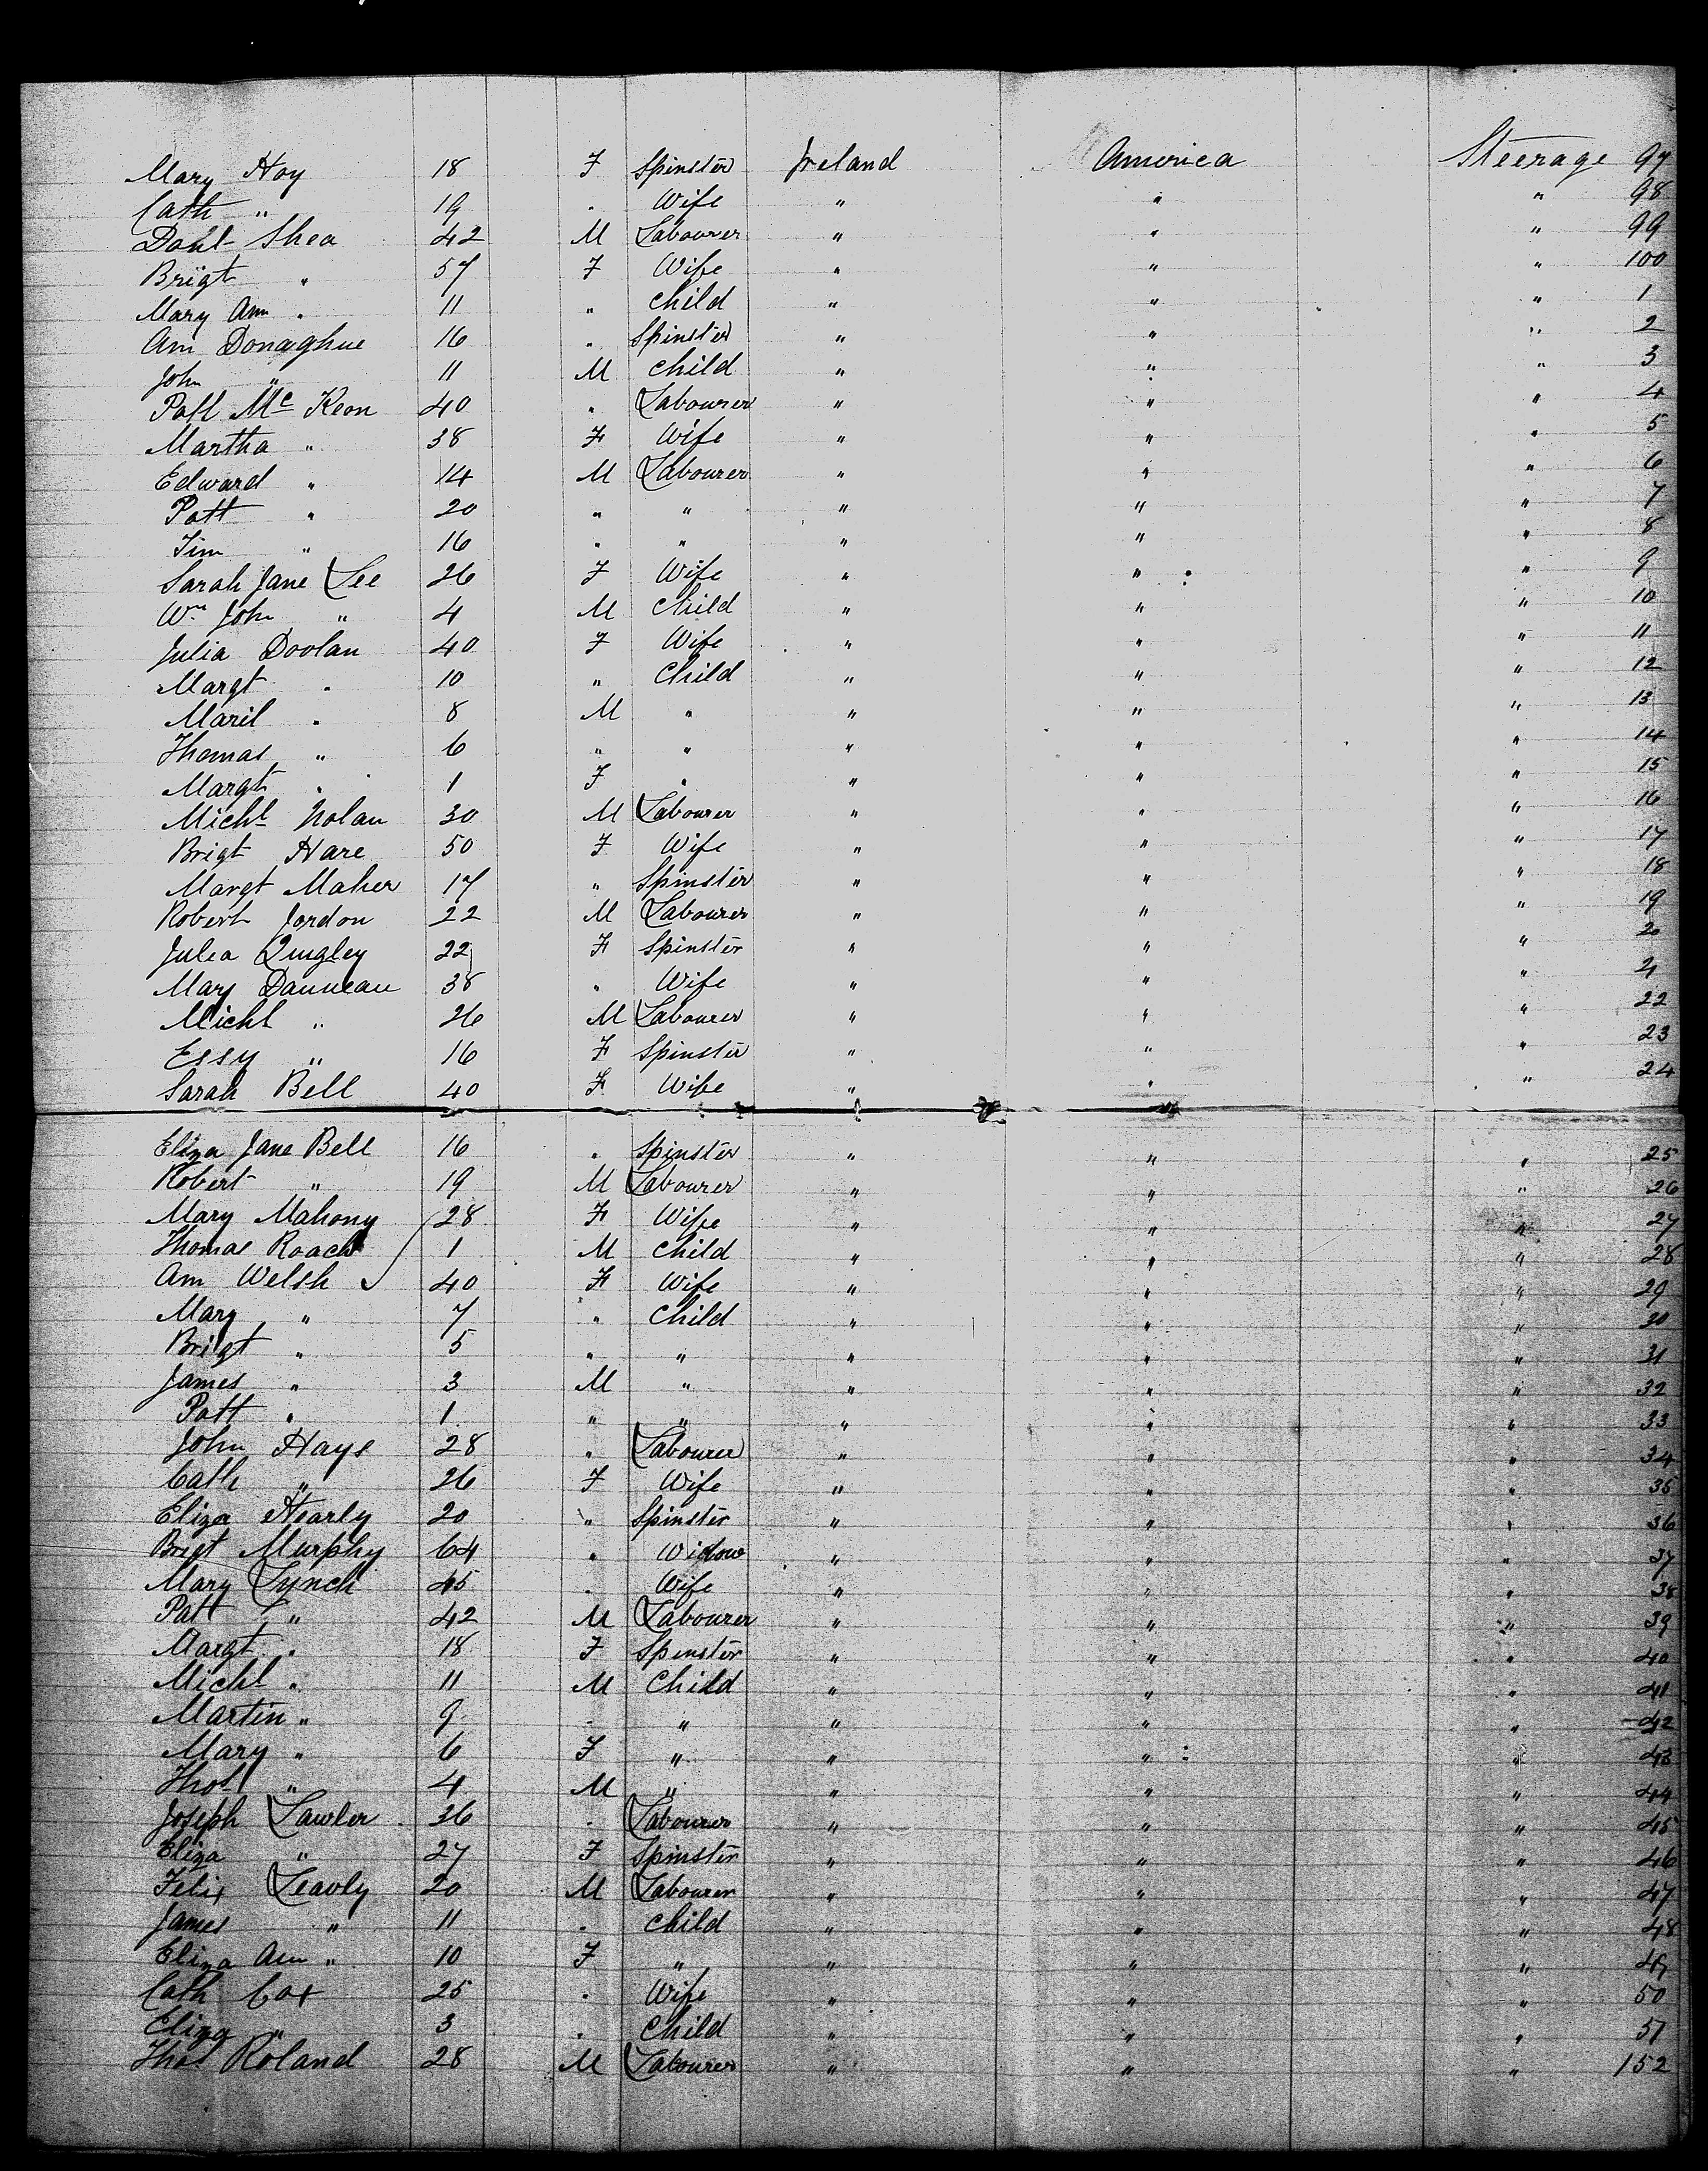 Mary Hoy 18 F Spinster Ireland America Steerage 97
Cath " 19 " Wife " " " 98
Danl Shea 42 M Labourer " " " 99
Brigt " 57 F Wife " " " 100
Mary Ann " 11 " Child " " " 1
Ann Donaghue 16 " Spinster " " " 2
John " 11 M Child " " " 3
Patt Mc Keon 40 " Labourer " " " 4
Martha " 38 F Wife " " " 5
Edward " 14 M Labourer " " " 6
Patt " 20 " " " " " 7
Tim " 16 " " " " " 8
Sarah Jane Lee 26 F Wife " " " 9
Wm John " 4 M Child " " " 10
Julia Doolan 40 F Wife " " " 11
Margt " 10 " Child " " " 12
8 M " " " " 13
Thomas " 6 " " " " " 14
Margt " 1 F " " " " 15
Michl Nolan 30 M Labourer " " " 16
Brigt Hare 50 F Wife " " " 17
Margt Maher 17 " Spinster " " " 18
Robert Jordon 22 M Labourer " " " 19
Julia Quigley 22 F Spinster " " " 20
Mary Danneau 38 " Wife " " " 21
Michl " 26 M Labourer " " " 22
Essy " 16 F Spinster " " " 23
Sarah Bell 40 F Wife " " " 24
Eliza Jane Bell 16 " Spinster " " " 25
Robert " 19 M Labourer " " " 26
Mary Mahony 28 F Wife " " " 27
Thomas Roach 1 M Child " " " 28
Ann Welsh 40 F Wife " " " 29
Mary " 7 " Child " " " 30
Brigt " 5 " " " " " 31
James " 3 M " " " " 32
Patt " 1 " " " " " 33
John Hays 28 " Labourer " " " 34
Cath " 26 F Wife " " " 35
Eliza Hearly 20 " Spinster " " " 36
Brigt Murphy 64 " Widow " " " 37
Mary Lynch 45 " Wife " " " 38
Patt " 42 M Labourer " " " 39
Margt " 18 F Spinster " " " 40
Michl " 11 M Child " " " 41
Martin " 9 " " " " " 42
Mary " 6 F " " " " 43
Thos " 4 M " " " " 44
Joseph Lawler 36 " Labourer " " " 45
Eliza " 27 F Spinster " " " 46
Felix Leavly 20 M Labourer " " " 47
James " 11 " Child " " " 48
Eliza Ann " 10 F " " " " 49
Cath Cox 25 " Wife " " " 50
Eliza " 3 " Child " " " 51
Thos Roland 28 M Labourer " " " 152